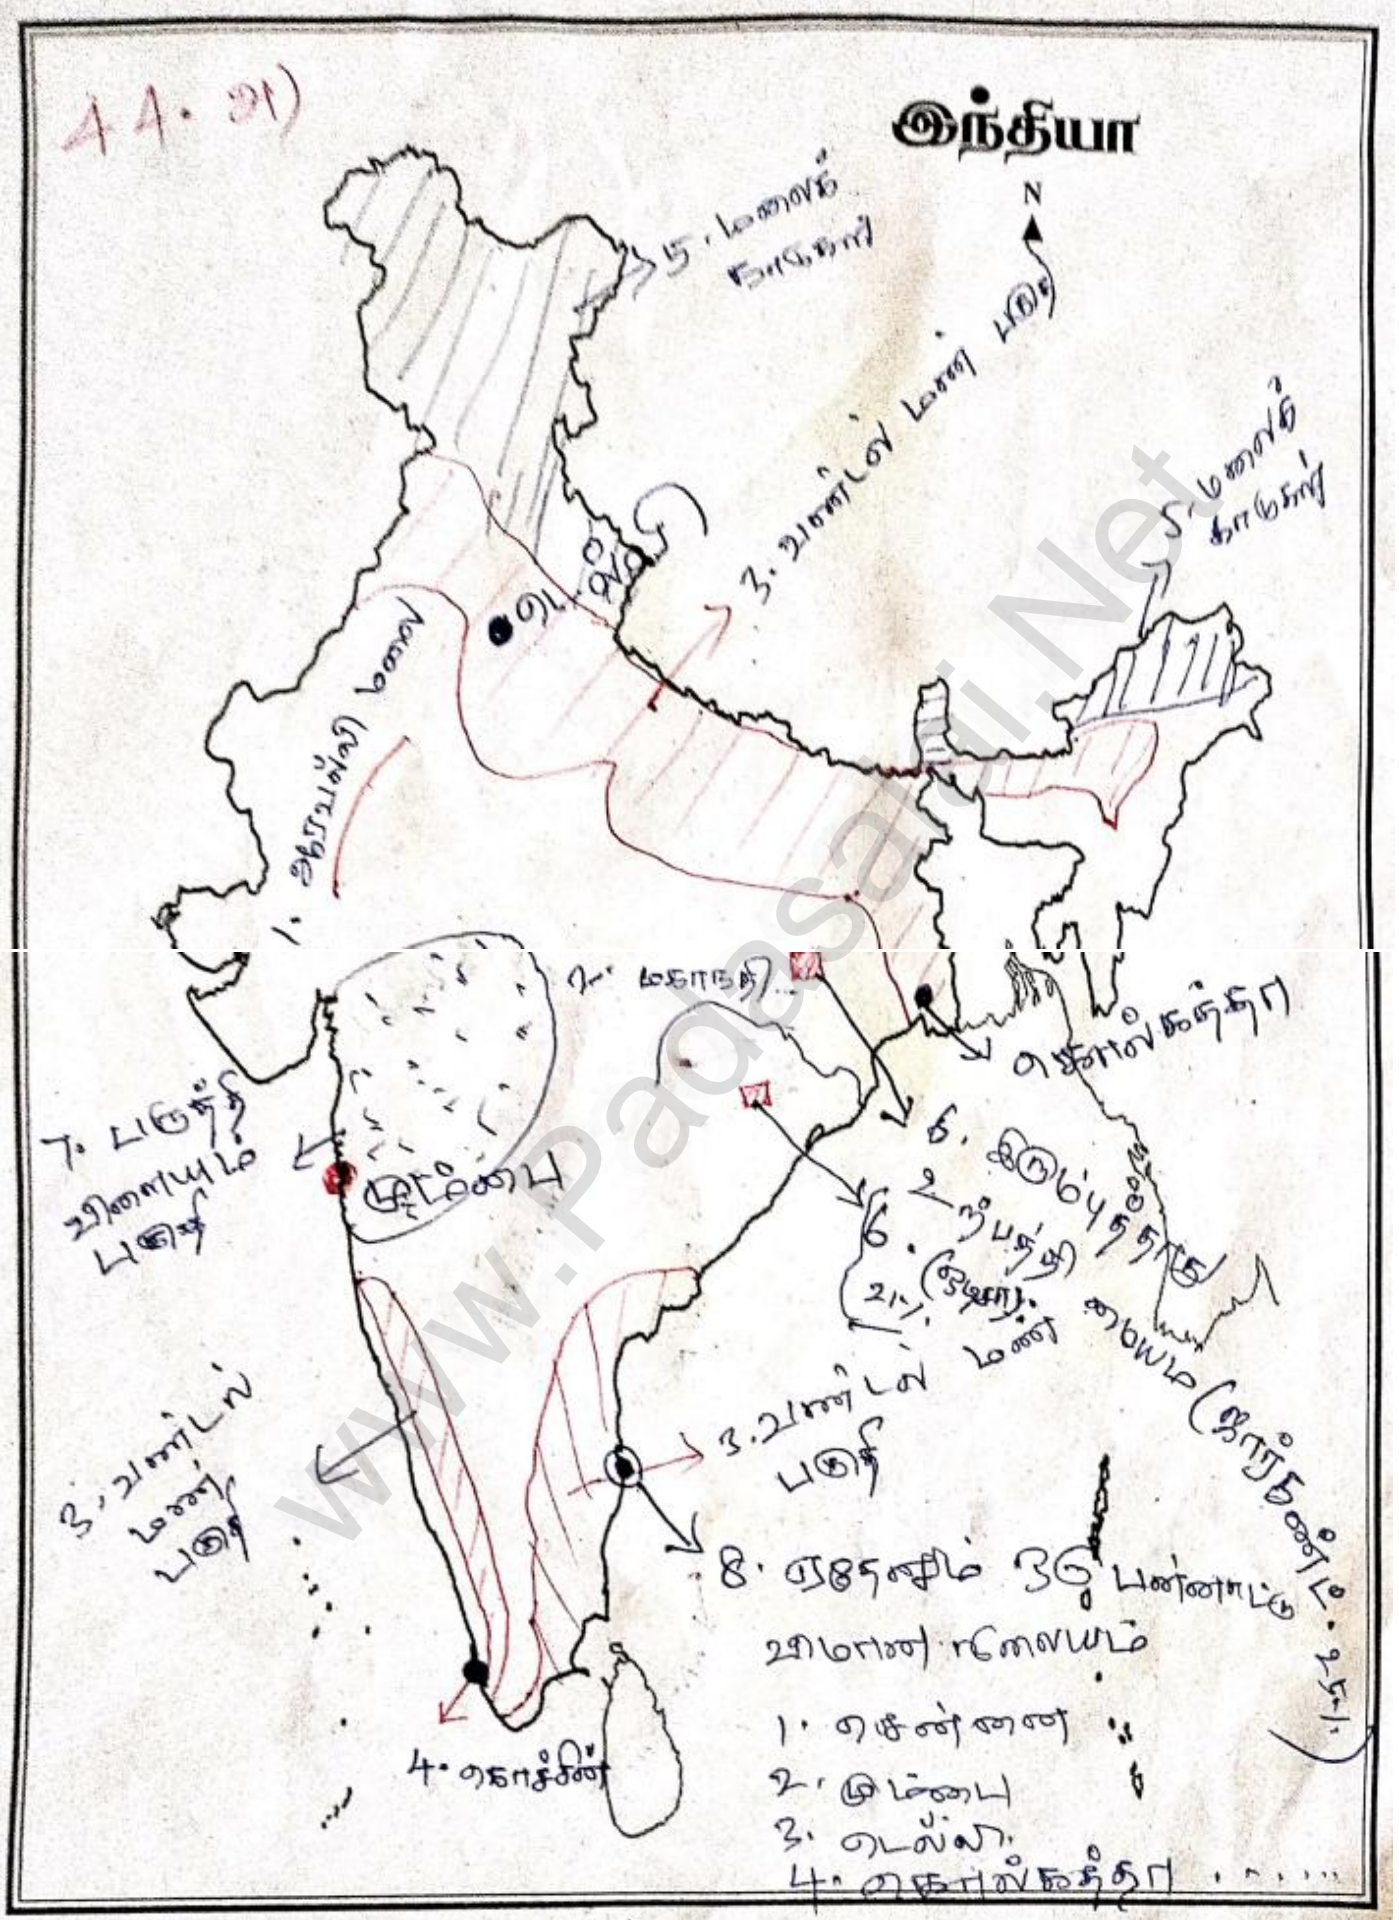 44. அ)
இந்தியா
N
5. மலைக்
காடுகள்
3. வண்டல் மண் பகுதி
5. மலைக்
காடுகள்
டெல்லி
1. ஆரவல்லி மலை
2. மகாநதி
கொல்கத்தா
7. பருத்தி
விளையும்
பகுதி
மும்பை
6. இரும்புத்தாது
உற்பத்தி
மையம் (ஜார்கண்ட். 25%)
6.
(ஒடிசா).
21%
3. வண்டல் மண்
பகுதி
3. வண்டல்
மண்
பகுதி
8. ஏதேனும் ஒரு பன்னாட்டு
விமான நிலையம்
1. சென்னை
2. மும்பை
3. டெல்லி.
4. கொல்கத்தா ......
4. கொச்சின்
www.Padasalai.Net